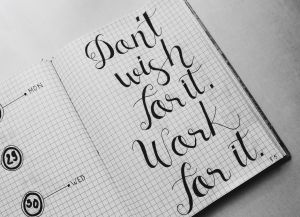 MON
29
30
WED
Don't
wish
for it.
Work
for it.